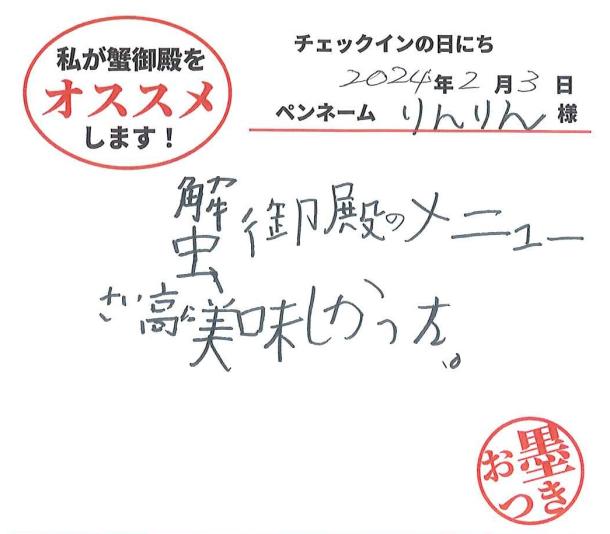 私が蟹御殿を
オススメ
します！
チェックインの日にち
2024年2月3日
ペンネーム りんりん 様
蟹御殿のメニュー
さい高に美味しかった。
お墨
つき